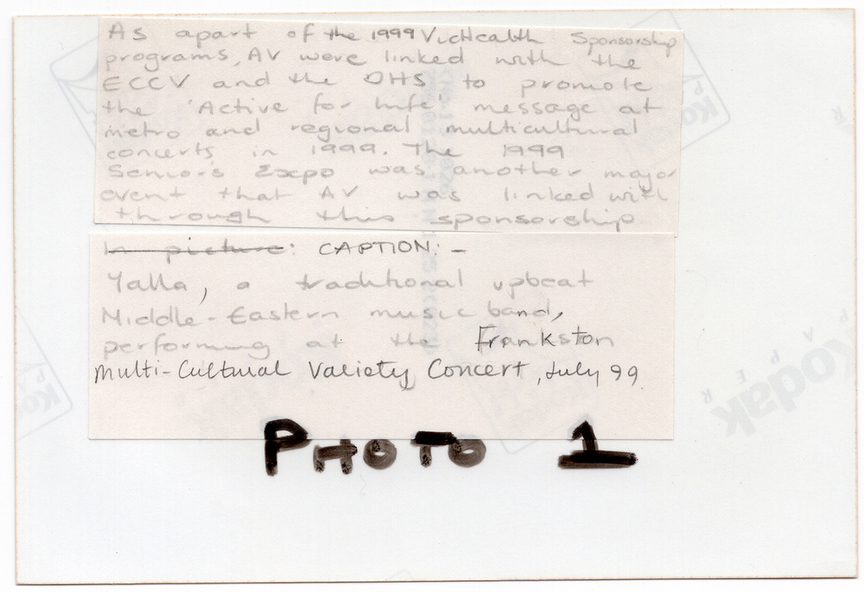 As apart of the 1999 VicHealth Sponsorship
programs, AV were linked with the
ECCV and the DHS to promote
the 'Active for Life' message at
metro and regional multicultural
concerts in 1999. The 1999
Seniors Expo was another major
event that AV was linked with
through this sponsorship
In picture: CAPTION:-
Yalla, a traditional upbeat
Middle-Eastern music band,
performing at the Frankston
Multi-Cultural Variety Concert, July 99.
PHOTO 1
Kodak
PAPER